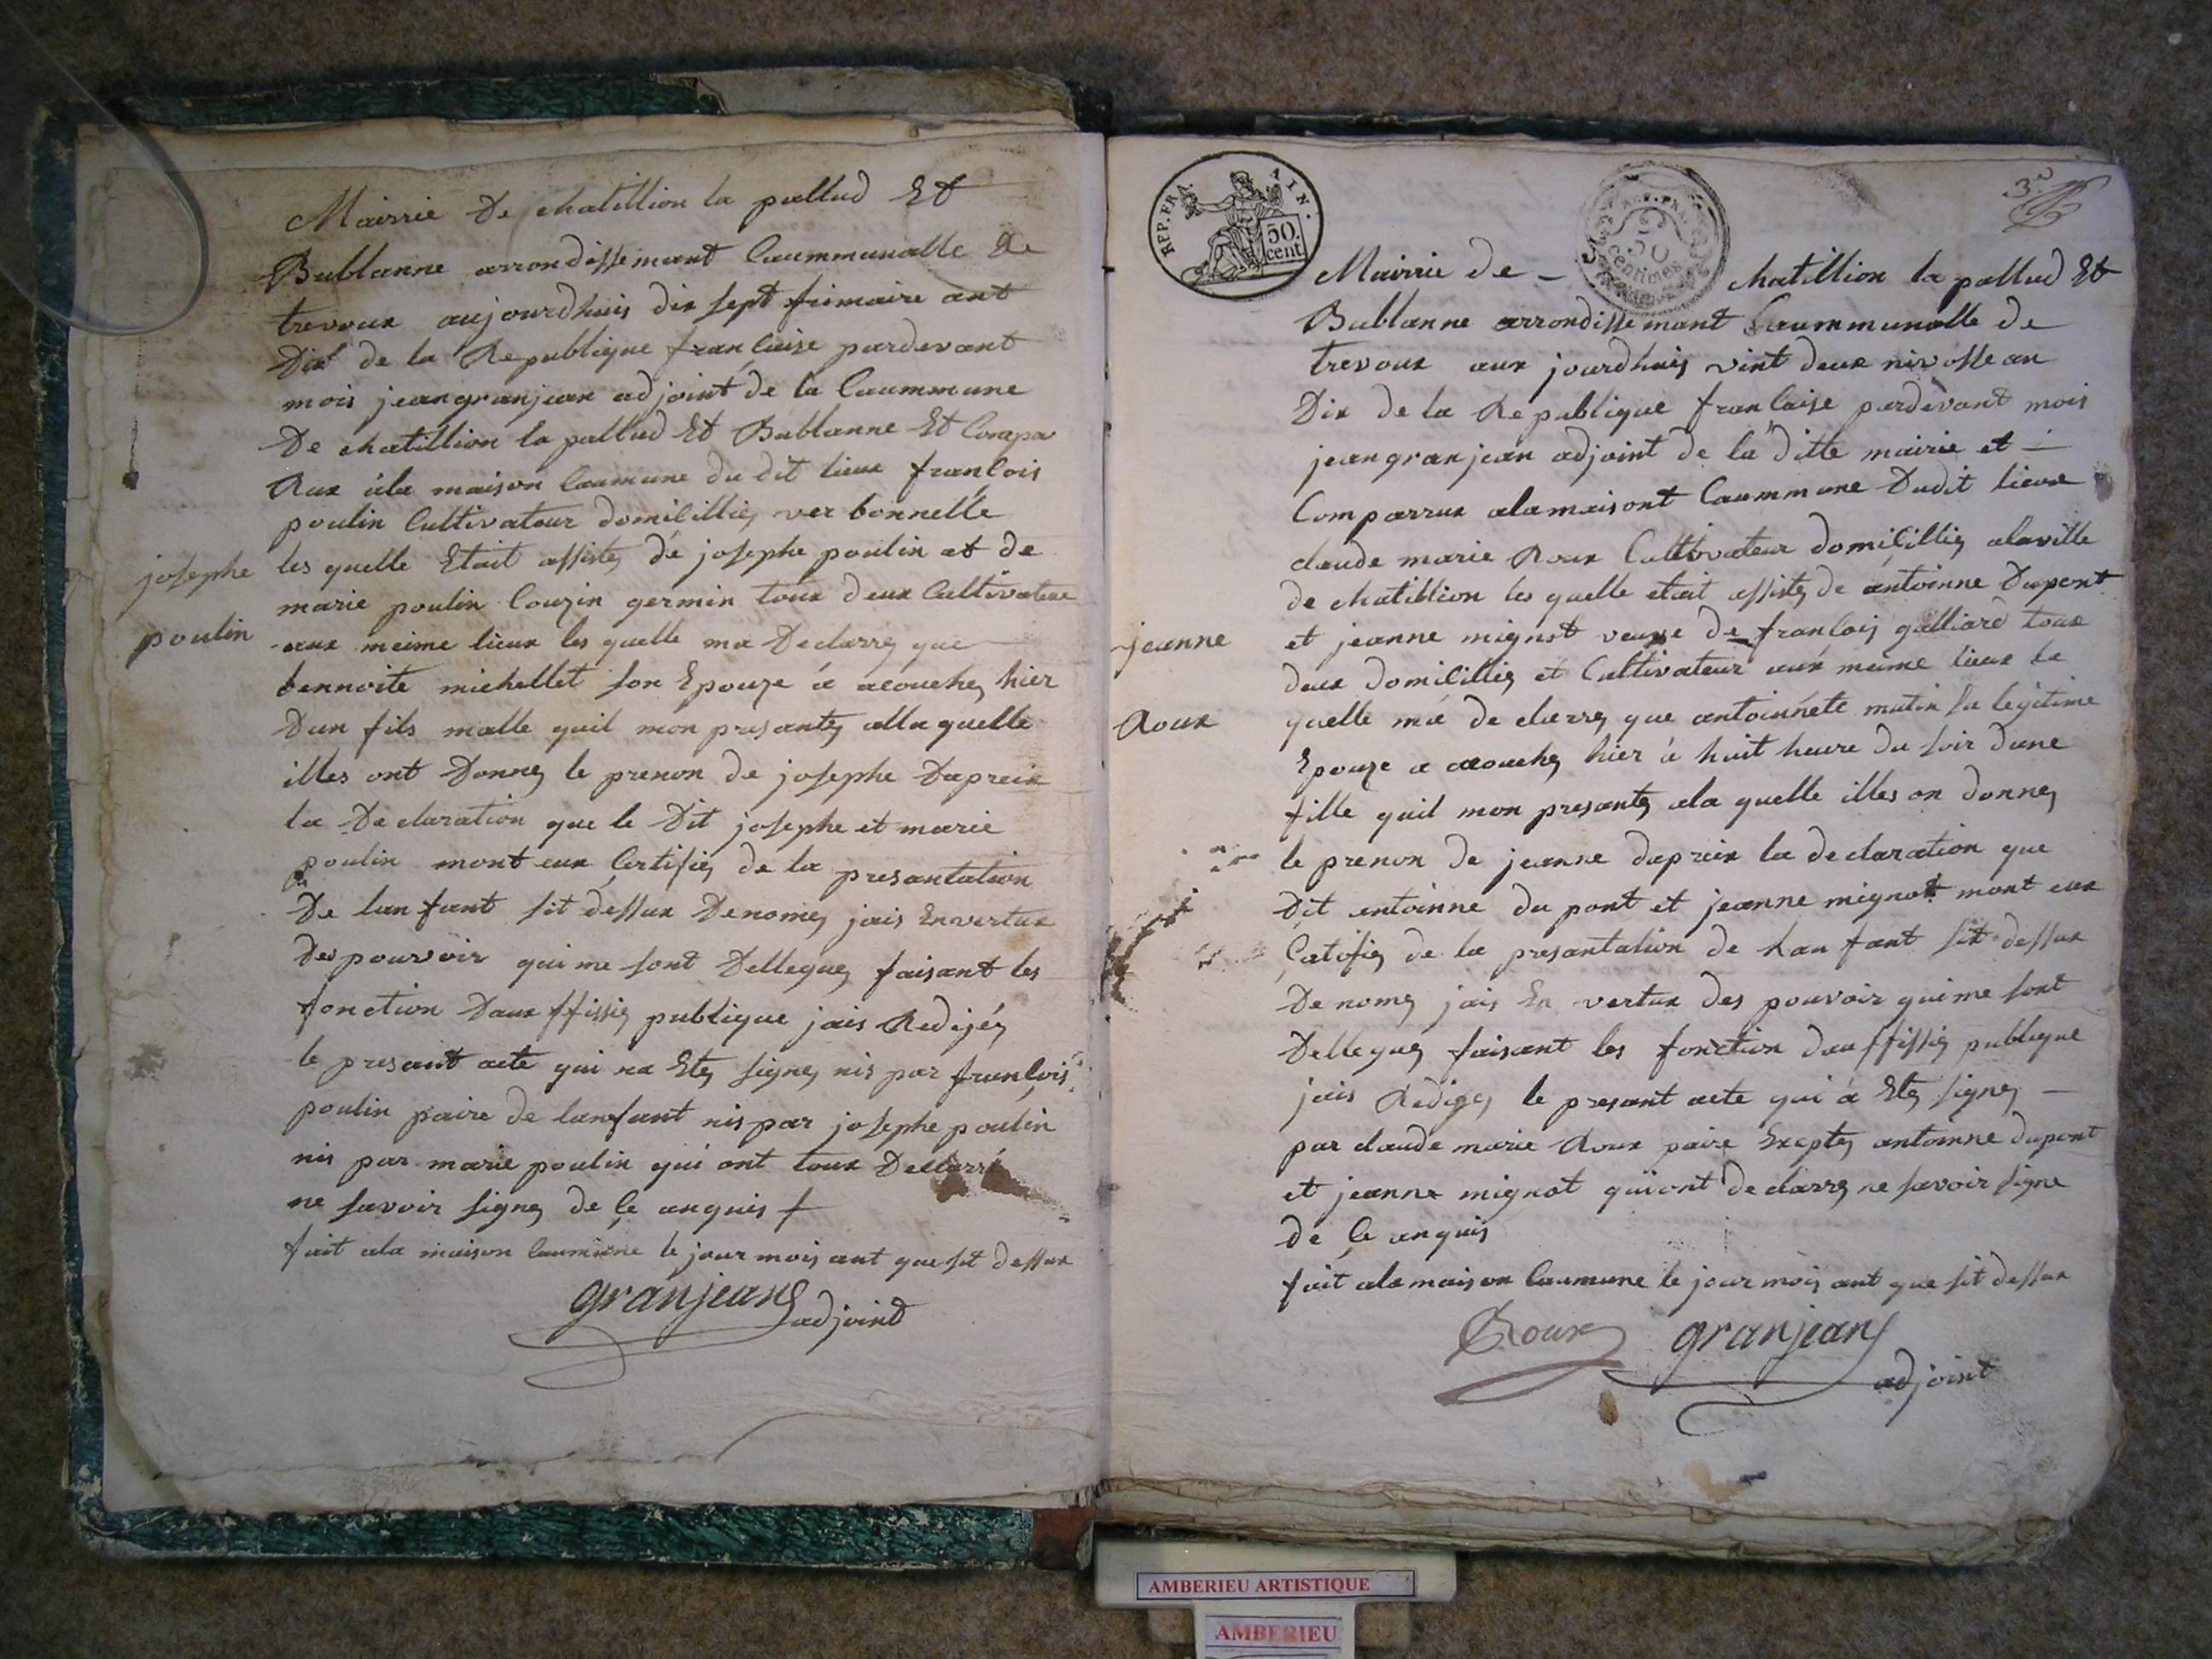 Mairrie De chatillion la pallud Et
Bublanne arrondissemant Caummunalle de
trevoux aujourdhuis dix sept frimaire ant
Dix de la Republique francaise pardevant
mois jeangranjean adjoint de la Caummune
De chatillion la pallud Et Bublanne Et Compa
Rux àla maison Caumune du dit lieux francois
poulin Cultivateur domicilliez ver bonnelle
josephe
les quelle Etait assistez de josephe poulin et de
marie poulin Couzin germin toux deux Cultivateur
poulin
aux meime lieux les quelle ma Declarrez que
bennoite michellet son Epouze à acouchez hier
Dun fils malle quil mon presantez alla quelle
illes ont Donnez le prenon de josephe Dapreix
la Declaration que le Dit josephe et marie
poulin mont eux Certifiez de la presantation
De lanfant sit dessux Denomez jais Envertux
Des pouvoir qui me sont Delleguez faisant les
fonction Dauxffissiez publique jais Redijéz
le presant acte qui na Etez signez nis par francois
poulin paire de lanfant nis par josephe poulin
nis par marie poulin qui ont toux Declarré
ne savoir signez de ce anquis
fait ala maison Caumune le jour mois ant que sit dessux
granjean adjoint
REP. FRA. AIN.
50. cent
50 centimes
3e
Mairrie de - chatillion la pallud Et
Bublanne arrondissemant Caummunalle de
trevoux aux jourdhuis vint deux nivosse an
Dix de la Republique francaise pardevant mois
jeangranjean adjoint de la ditte mairie et -
Comparrux alamaisont Caummune Dudit lieux
claude marie Roux Cultivateur domicilliez alaville
de chatillion les quelle etait assistez de antoinne Dupont
jeanne
et jeanne mignot veuve de francois galliard toux
deux domicilliez et Cultivateur aux meime lieux le
Roux
quelle ma de clarrez que antoinnete mutin sa legitime
Epouze a acouchez hier à huit heure du soir dune
fille quil mon presantez ala quelle illes on donnez
le prenon de jeanne dapreix la declaration que
Dit antoinne du pont et jeanne mignot mont eux
Catifiez de la presantation de lan fant sit dessux
De nomez jais En vertux des pouvoir qui me sont
Delleguez faisant les fonction dauffissiez publique
jais Redigez le presant acte qui à Etez signez -
par claude marie Roux paire Exeptez antoinne dupont
et jeanne mignot qui ont declarrez ne savoir signe
de ce anquis
fait ala maison Caumune le jour mois ant que sit dessux
Roux granjean
adjoint
AMBERIEU ARTISTIQUE
AMBERIEU